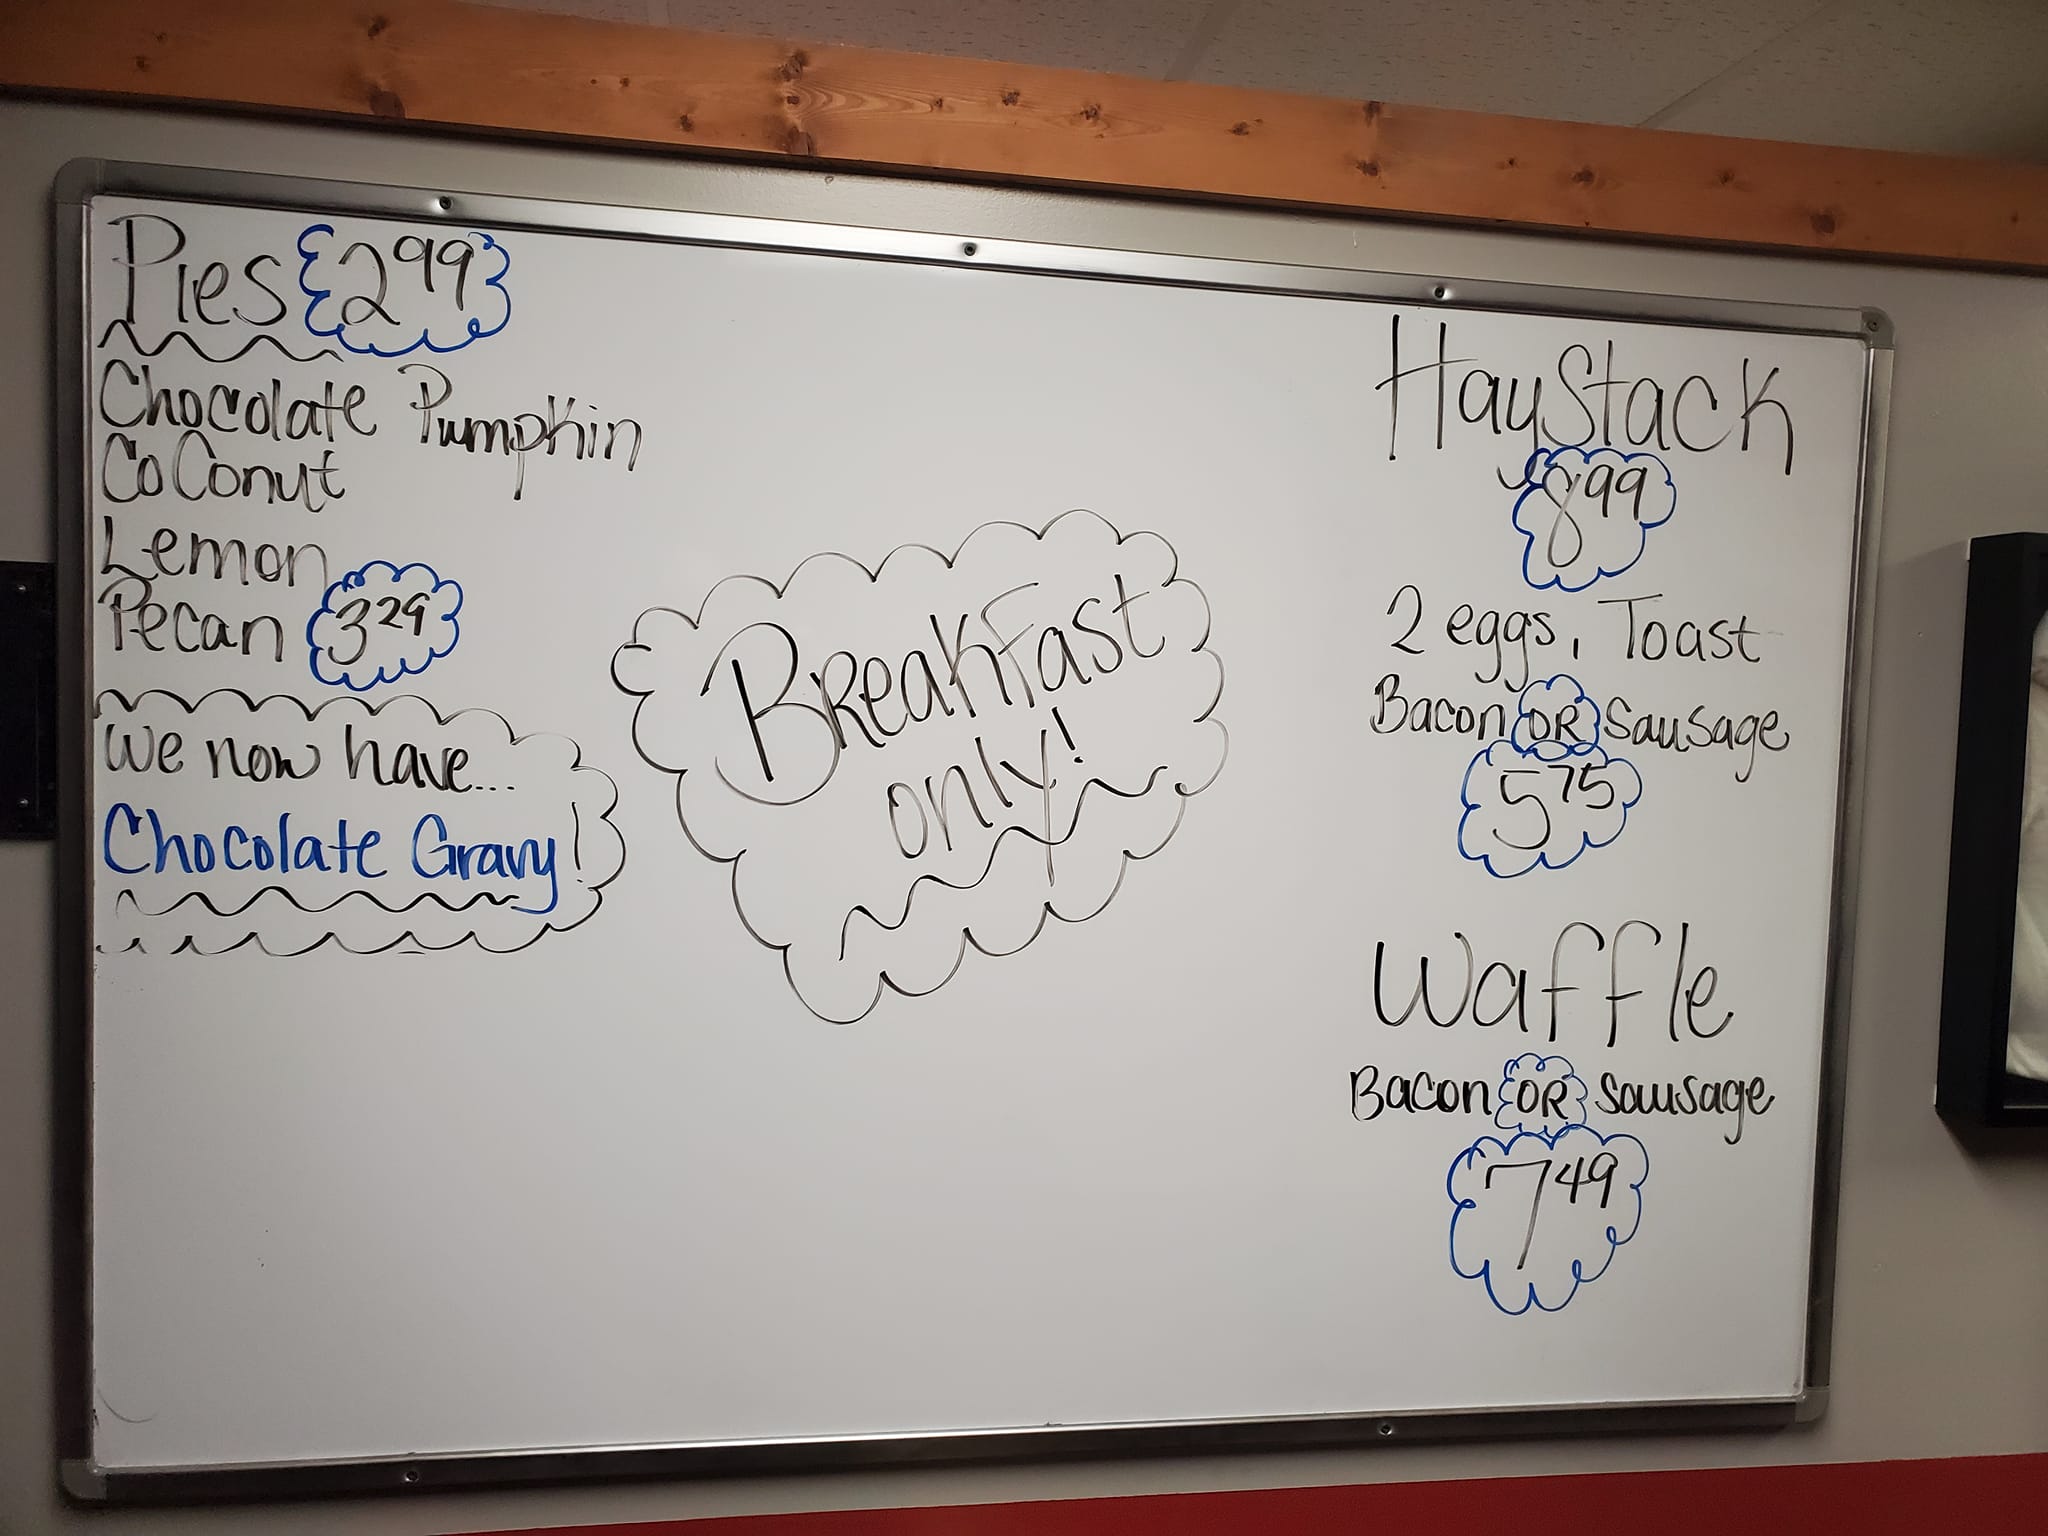 Pies 2 99
Chocolate Pumpkin
CoConut
Lemon
Pecan 3 29
We now have...
Chocolate Gravy!
BreakFast
only!
HayStack
8 99
2 eggs, Toast
Bacon OR Sausage
5 75
Waffle
Bacon OR Sausage
7 49